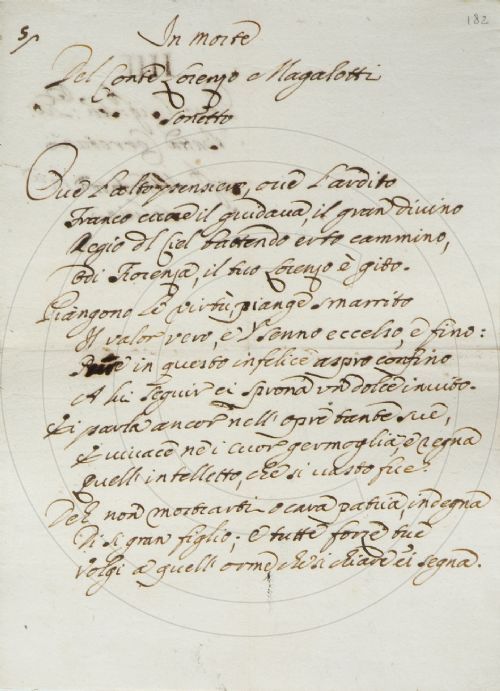 182
5
In morte
Del Conte Lorenzo Magalotti
Sonetto
Ove l'alto pensier, ove l'ardito
Franco cuore il guidava, il gran divino
Regio del Ciel battendo erto cammino,
Odi Fiorenza, il tuo Lorenzo è gito.
Piangono le virtù, piange smarrito
Il valor vero, e 'l senno eccelso, e fino:
Pure in questo infelice aspro confino
A lui seguir ci sprona un dolce invito.
Ei parla ancor nell'opre tante sue,
E vivace ne i cuor germoglia, e regna
Quell'intelletto, che si vasto fue.
Deh non mostrarti o cara patria indegna
Di si gran figlio; e tutte forze tue
Volgi a quell'orme ch'ei si chiare segna.